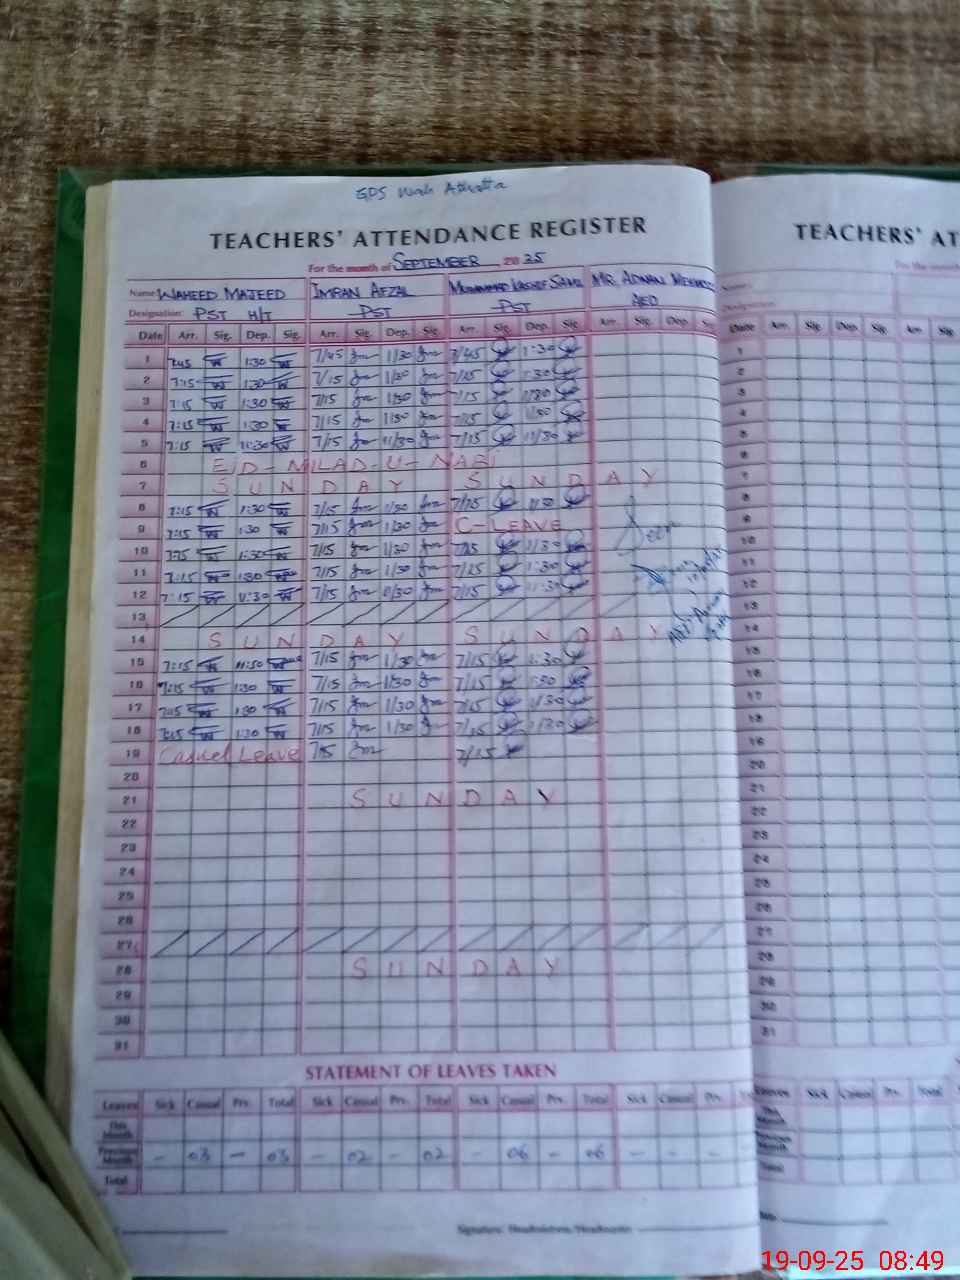 GPS Wah
TEACHERS' ATTENDANCE REGISTER
TEACHERS' AT
For the month of SEPTEMBER 2025
Name WAHEED MAJEED IMRAN AFZAL MUHAMMAD KASHIF SAMI MR. ADNAN MEHMOOD
Designation: PST H/T PST PST AEO
Date Arr. Sig. Dep. Sig. Arr. Sig. Dep. Sig. Arr. Sig. Dep. Sig. Arr. Sig. Dep. Date Arr. Sig. Dep. Sig. Arr. Sig.
1 7:45 1:30 7/45 1/30 7/45 1:30 1
2 7:15 1:30 7/15 1/30 7/15 1:30 2
3 7:15 1:30 7/15 1/30 7/15 1/30 3
4 7:15 1:30 7/15 1/30 7/15 1/30 4
5 7:15 11:30 7/15 11/30 7/15 11/30 5
6 EID-MILAD-U-NABI 6
7 SUNDAY SUNDAY 7
8 7:15 1:30 7/15 1/30 7/15 1/30 8
9 7:15 1:30 7/15 1/30 C-LEAVE Seen 9
10 7:15 1:30 7/15 1/30 7/15 1/30 10
11 7:15 1:30 7/15 1/30 7/15 1:30 11
12 7:15 11:30 7/15 11/30 7/15 11:30 12
13 13
14 SUNDAY SUNDAY 14
15 7:15 7/15 1/30 7/15 1:30 15
16 7:15 1:30 7/15 1/30 7/15 1:30 16
17 7:15 1:30 7/15 1/30 7/15 1/30 17
18 7:15 1:30 7/15 1/30 7/15 1/30 18
19 Casual Leave 7/15 7/15 19
20 20
21 SUNDAY 21
22 22
23 23
24 24
25 25
26 26
27 27
28 SUNDAY 28
29 29
30 30
31 31
STATEMENT OF LEAVES TAKEN
Leaves Sick Casual Prv. Total Sick Casual Prv. Total Sick Casual Prv. Total Sick Casual Prv. Leaves Sick Casual Prv. Total
This Month This Month
Previous Month - 03 - 03 - 02 - 02 - 06 - 06 - - - - Previous Month
Total Total
Signature: Headmistress/Headmaster
19-09-25 08:49